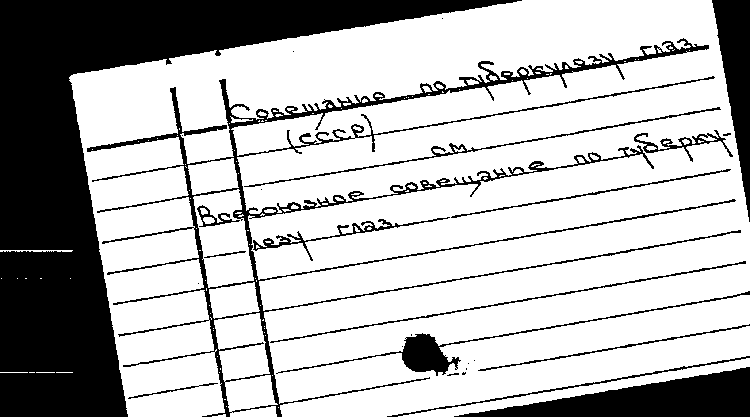 Совещание по туберкулезу глаз.
(СССР)
см.
Всесоюзное совещание по туберку-
лезу глаз.